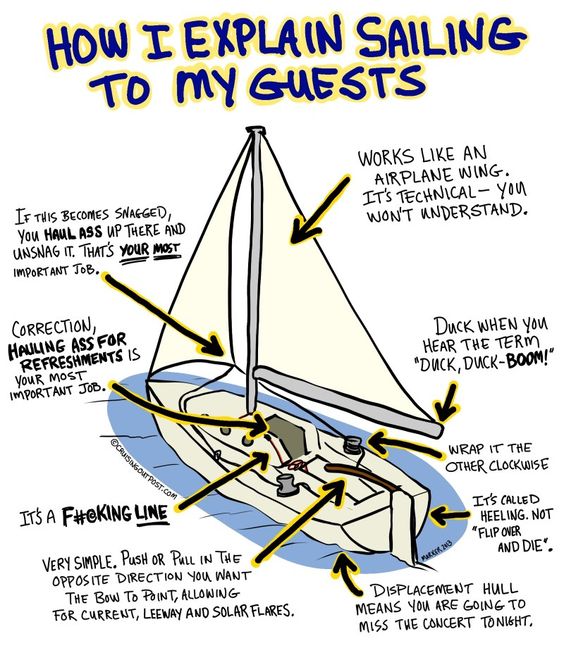 HOW I EXPLAIN SAILING
TO MY GUESTS
WORKS LIKE AN
AIRPLANE WING.
IT'S TECHNICAL — YOU
WON'T UNDERSTAND.
IF THIS BECOMES SNAGGED,
YOU HAUL ASS UP THERE AND
UNSNAG IT. THAT'S YOUR MOST
IMPORTANT JOB.
CORRECTION,
HAULING ASS FOR
REFRESHMENTS IS
YOUR MOST
IMPORTANT JOB.
DUCK WHEN YOU
HEAR THE TERM
"DUCK, DUCK-BOOM!"
WRAP IT THE
OTHER CLOCKWISE
©CRUISINGOUTPOST.COM
IT'S A F#@KING LINE
IT'S CALLED
HEELING. NOT
"FLIP OVER
AND DIE".
VERY SIMPLE. PUSH OR PULL IN THE
OPPOSITE DIRECTION YOU WANT
THE BOW TO POINT, ALLOWING
FOR CURRENT, LEEWAY AND SOLAR FLARES.
MARKER. 2013
DISPLACEMENT HULL
MEANS YOU ARE GOING TO
MISS THE CONCERT TONIGHT.